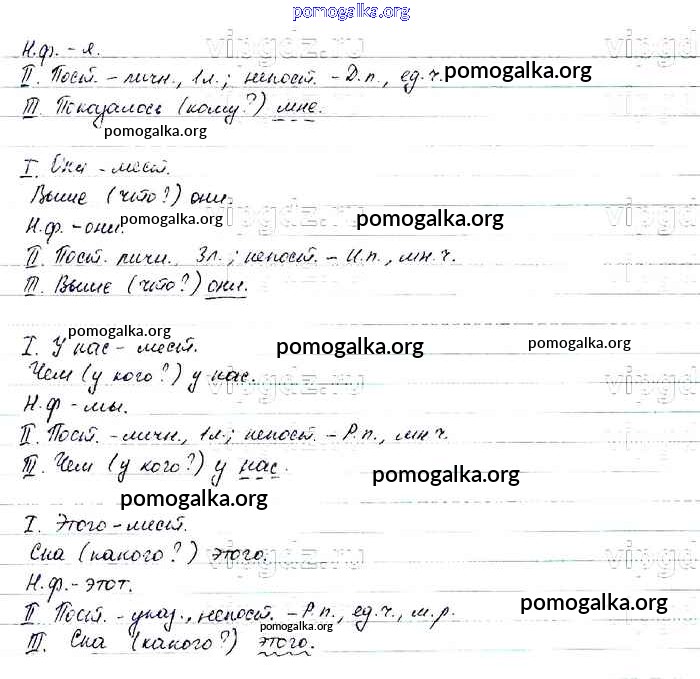 pomogalka.org
Н.ф. - я.
II. Пост. - личн., 1л.; непост. - Д.п., ед.ч. pomogalka.org
III. Показалось (кому?) мне.
pomogalka.org
I. Они - мест.
Выше (что?) они.
pomogalka.org pomogalka.org
Н.ф. - они.
II. Пост. личн. 3л.; непост. - И.п., мн.ч.
III. Выше (что?) они.
pomogalka.org
I. У нас - мест. pomogalka.org pomogalka.org
Чем (у кого?) у нас. vipgdz.ru
Н.ф - мы.
II. Пост. - личн., 1л.; непост. - Р.п., мн.ч.
III. Чем (у кого?) у нас.
pomogalka.org
pomogalka.org
I. Этого - мест.
Сна (какого?) этого. vipgdz.ru
Н.ф. - этот.
pomogalka.org
II Пост. - указ., непост. - Р.п., ед.ч., м.р.
pomogalka.org
III. Сна (какого?) этого.